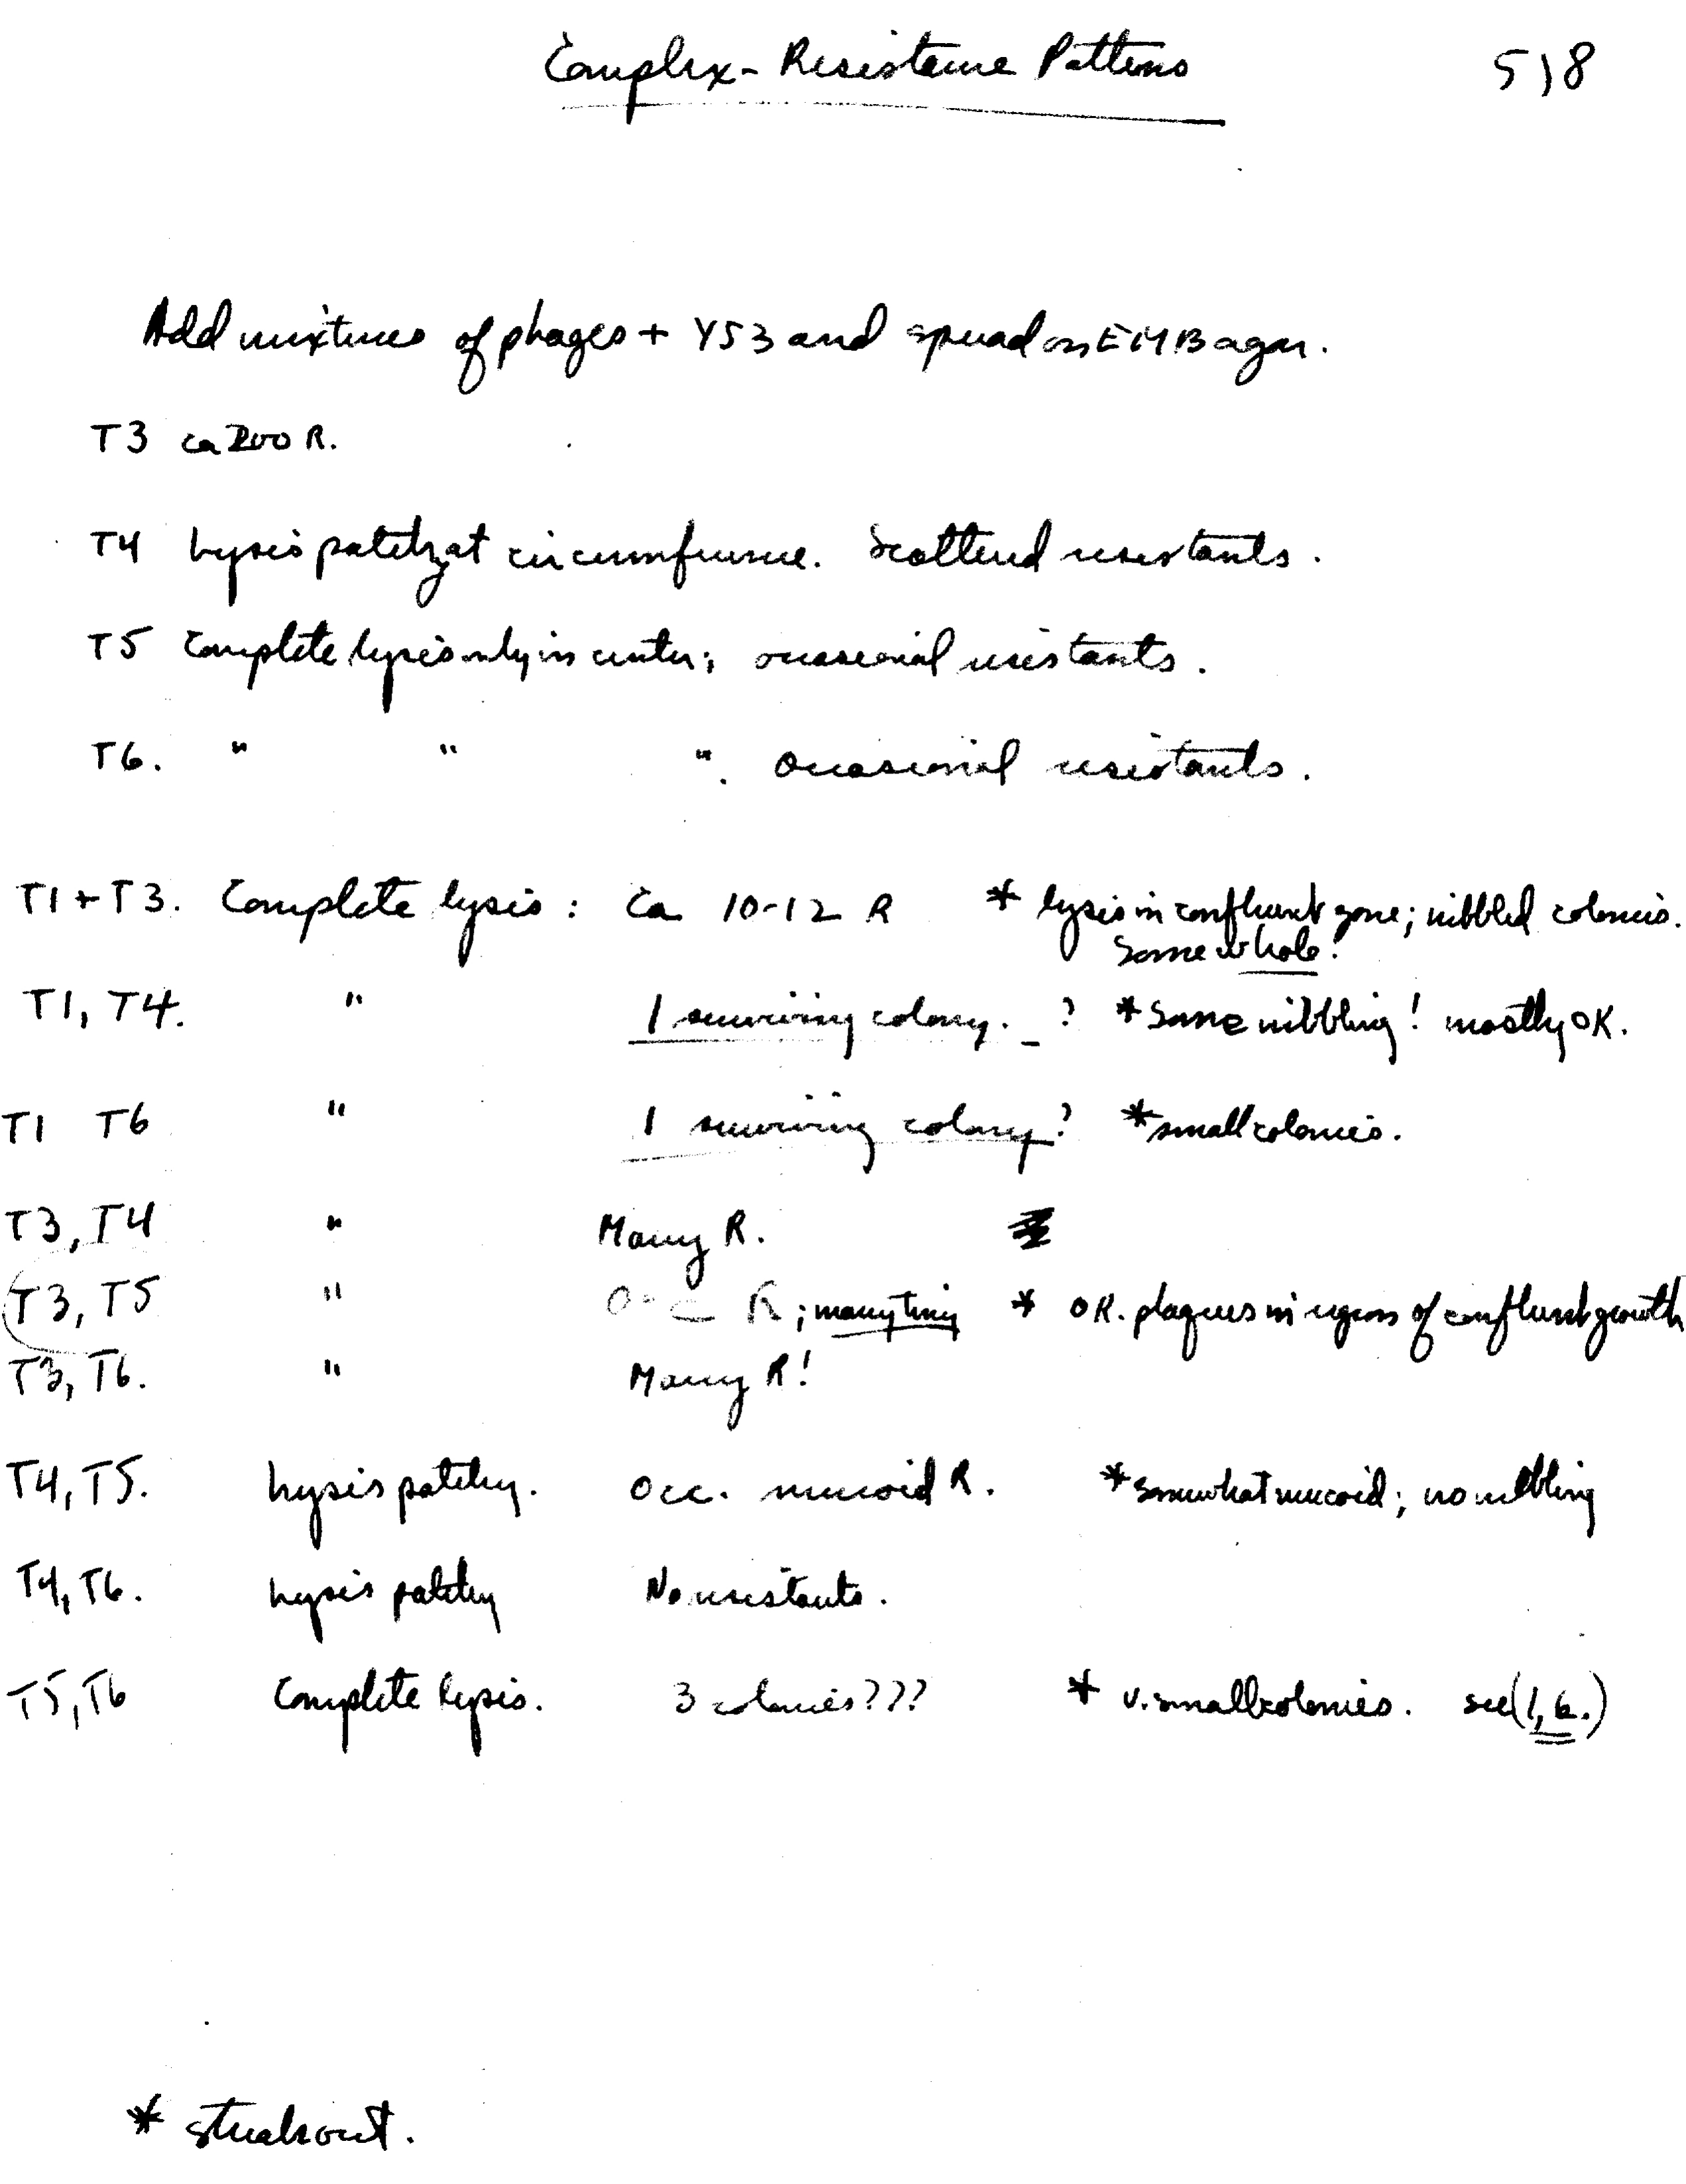 Complex-Resistance Patterns 518
Add mixtures of phages + Y53 and spread on EMB agar.
T3 ca 200 R.
T4 Lysis patchy at circumference. Scattered resistants.
T5 Complete lysis only in center; occasional resistants.
T6. " " ". Occasional resistants.
T1 + T3. Complete lysis: Ca 10-12 R * lysis in confluent zone; nibbled colonies.
Some whole!
T1, T4. " 1 surviving colony. ? * Some nibbling! mostly OK.
T1 T6 " 1 surviving colony? * small colonies.
T3, T4 " Many R.
T3, T5 " Occ R; many tiny * OK. plaques in region of confluent growth
T3, T6. " Many R!
T4, T5. Lysis patchy. Occ. mucoid R. * somewhat mucoid; no nibbling
T4, T6. Lysis patchy No resistants.
T5, T6 Complete lysis. 3 colonies??? * v. small colonies. see (1, 6.)
* streakout.